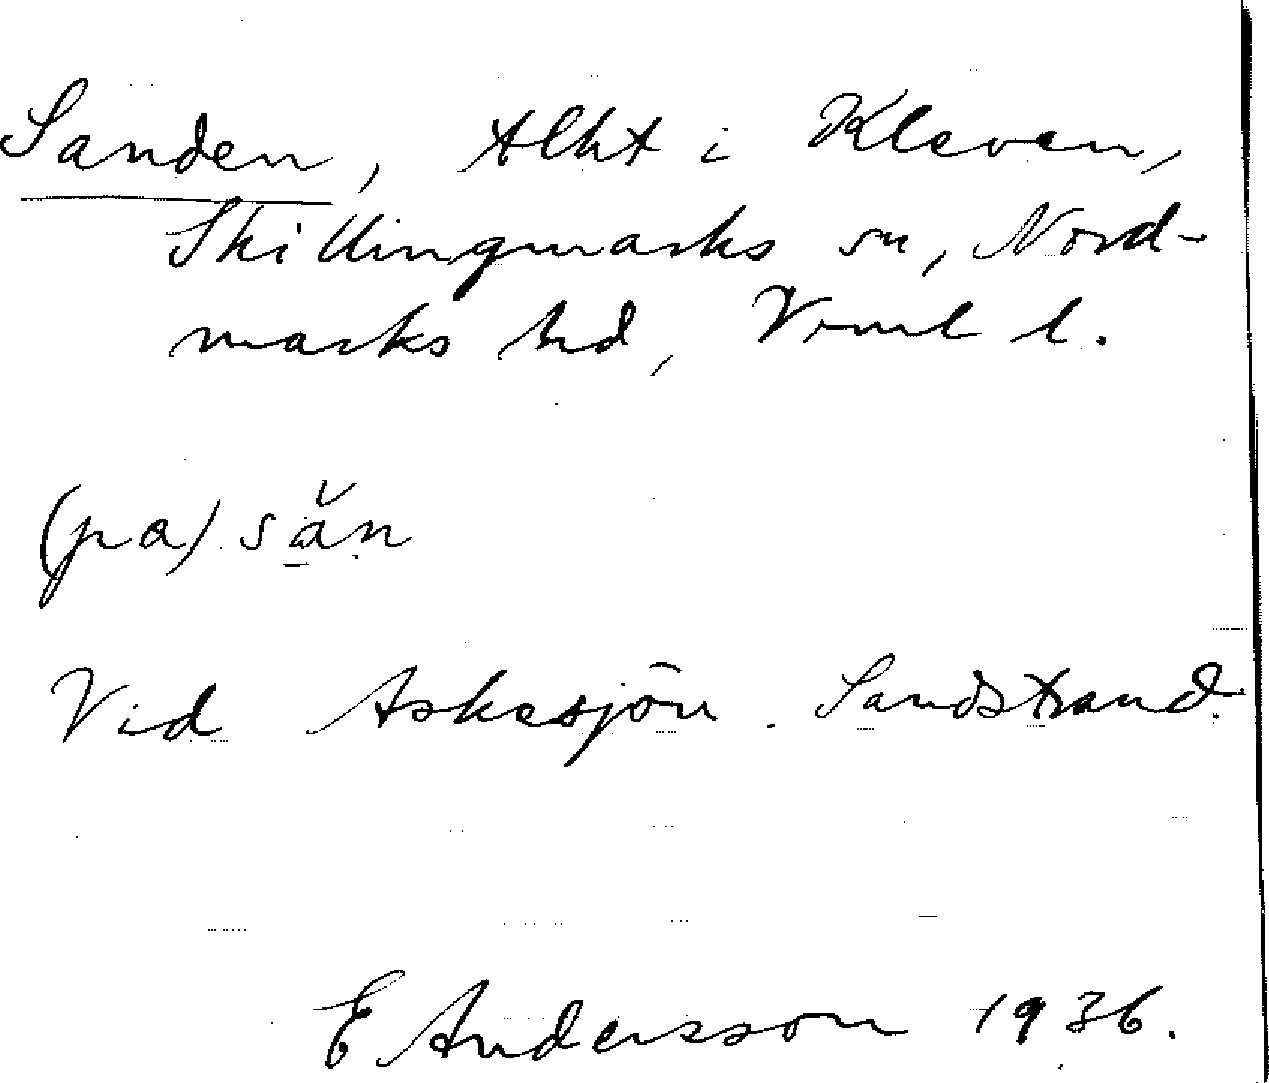 Sanden, tlht i Kleven,
Skillingmarks sn, Nord-
marks hd, Vrml l.
(pa) săn
Vid Askesjön. Sandstrand.
E Andersson 1936.